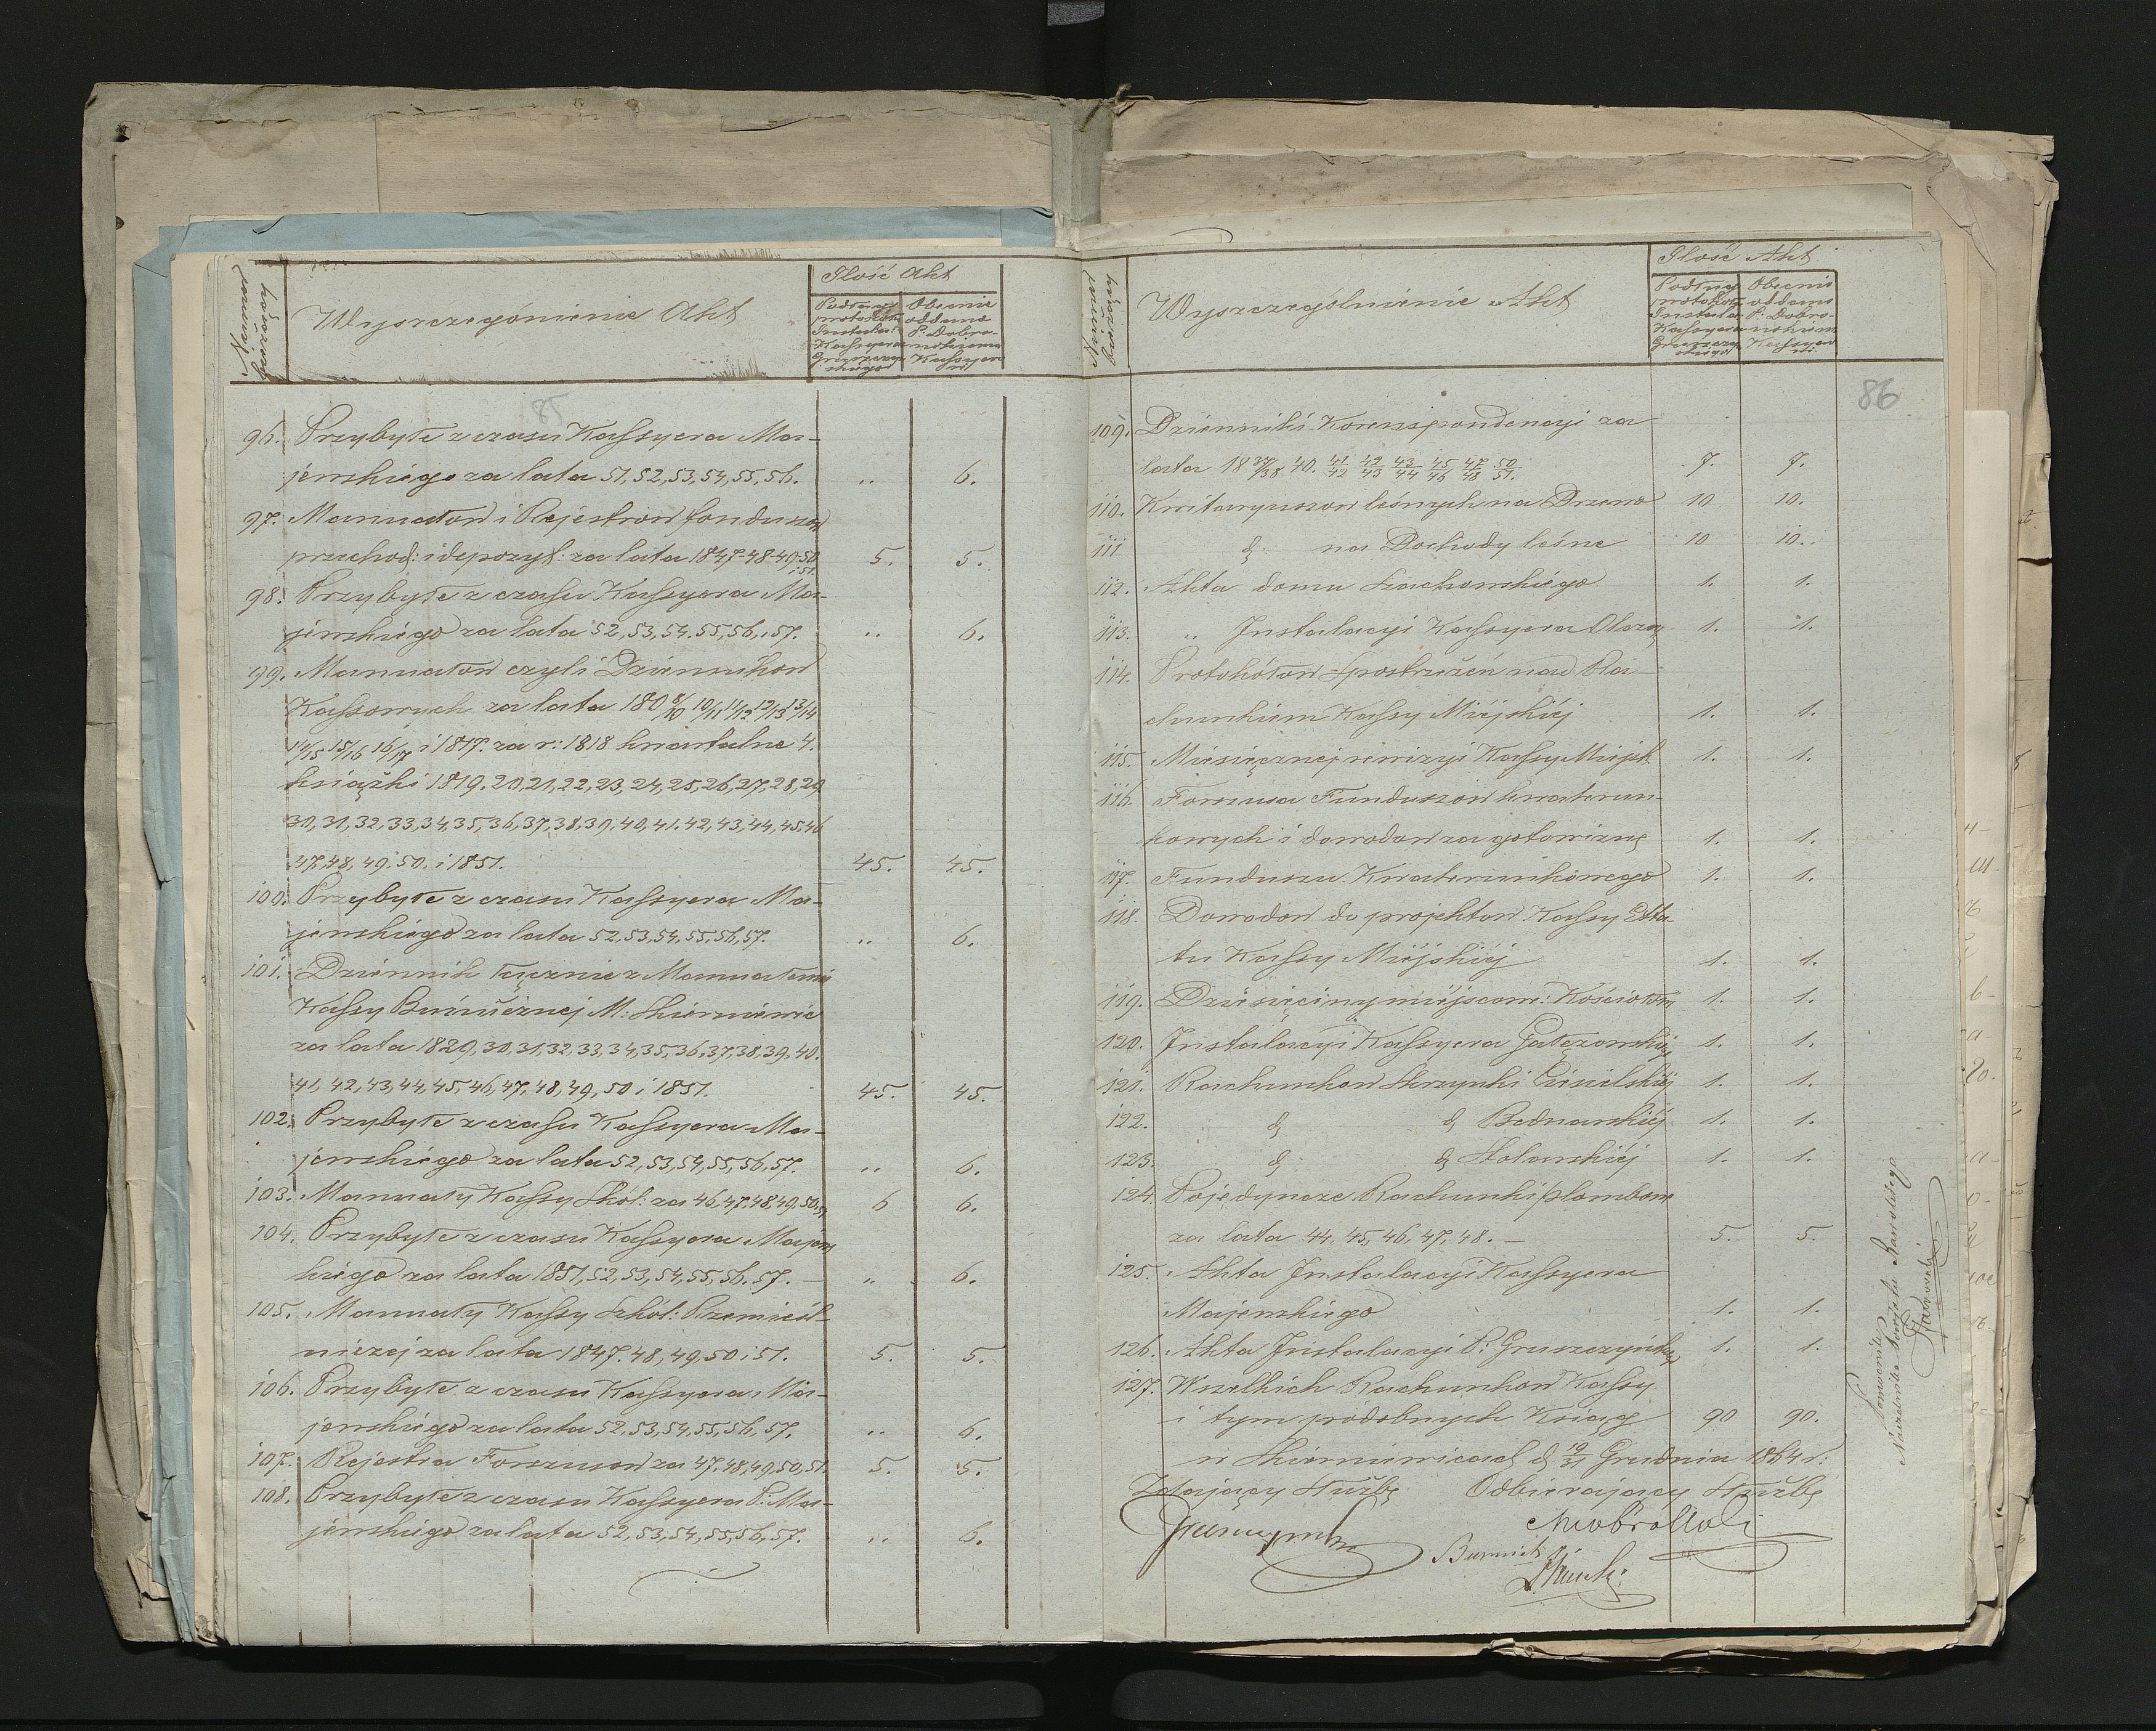 Numer bieżący
Wyszczegónienie Akt
Ilość Akt
Podług protokółu Instalac: Kassyera Gruszczyńskiego
Obecnie oddano P. Dobrowolskiemu Kassyerowi
85
96. Przybyłe z czasu Kassyera Ma-
jewskiego za lata 51, 52, 53, 54, 55, 56. .. 6.
97. Manuałow i Rejestrow fonduszow
przechod: i depozyt: za lata 1847-48-49-50 i 51. 5. 5.
98. Przybyłe z czasu Kassyera Ma-
jewskiego za lata 52, 53, 54. 55, 56, i 57. .. 6.
99. Manuałow czyli Dziennikow
Kassowych za lata 180 8/10 10/11 11/12 12/13 13/14
14/15 15/16 16/17 i 1817. za r: 1818 kwartalne 4.
książki 1819. 20, 21, 22, 23, 24, 25, 26, 27, 28, 29
30, 31, 32, 33, 34, 35, 36, 37, 38, 39, 40, 41. 42, 43, 44, 45, 46
47, 48, 49. 50. i 1851. 45. 45.
100. Przybyłe z czasu Kassyera Ma-
jewskiego za lata 52, 53, 54, 55, 56, 57. .. 6.
101. Dziennik łącznie z Manuałami
Kassy Bóźniczej M: Skierniewic
za lata 1829, 30, 31, 32, 33, 34, 35, 36, 37, 38, 39, 40.
41, 42, 43, 44, 45, 46, 47, 48, 49, 50 i 1851. 45. 45.
102. Przybyłe z czasu Kassyera Ma-
jewskiego za lata 52, 53, 54, 55, 56, 57. .. 6.
103. Manuały Kassy Skól: za 46, 47. 48, 49. 50. 51 6 6.
104. Przybyłe z czasu Kassyera Majews
kiego za lata 1851, 52, 53, 54, 55, 56. 57. — .. 6.
105. Manuały Kassy Szkół: Rzemieśl-
niczej za lata 1847. 48, 49, 50 i 51. 5. 5.
106. Przybyłe z czasu Kassyera Ma-
jewskiego za lata 52, 53, 54, 55, 56, 57. .. 6.
107. Rejestra Forszusow za 47, 48, 49, 50, 51. 5. 5.
108. Przybyłe z czasu Kassyera P. Ma-
jewskiego za lata 52, 53, 54, 55, 56, 57. .. 6.
Numer bieżący
Wyszczególnienie Akt
Ilość Akt.
Podług protokołu Instala: Kassyera Gruszczyńskiego
Obecnie oddano P. Dobrowolskiem Kassyerowi
86
109. Dzienniki Korrespondencyi za
lata 18 37/38 40. 41/42 42/43 43/44 45/46 47/48 50/51. 7. 7.
110. Kwitaryuszow leśnych na Drzewo 10 10.
111 d na Dochody leśne 10 10.
112. Akta domu Szachowskiego 1. 1.
113. " Instalacyi Kassyera 1. 1.
114. Protokółow spostrzeżeń nad Ra-
chunkiem Kassy Miejskiéj 1. 1.
115. Miesięcznej rewizyi Kassy Miejsk 1. 1.
116. Forszusa Funduszow kwaterun-
kowych i dowodow za gotowiznę 1. 1.
117. Funduszu Kwaterunkowego 1. 1.
118. Dowodow do projektow Kassy Etta-
tu Kassy Miejskiéj 1. 1.
119. Dziesięciny miejscom: Kościołow 1. 1.
120. Instalacyi Kassyera Gałezowskiej 1. 1.
121. Rachunkow Skrzynki Ciesielskiéj 1. 1.
122. d d Bednarskiéj 1. 1.
123. d d Stolarskiéj 1. 1.
124. Pojedyncze Rachunki plombow
za lata 44. 45, 46. 47. 48. — 5. 5.
125. Akta Instalacyi Kassyera
Majewskiego 1. 1.
126. Akta Instalacyi P. Gruszczyńsk 1. 1.
127. Wszelkich Rachunkow Kassy
i tym podobnych Książg 90 90.
w Skierniewicach d 19/31 Grudnia 1864 r:
Zdający Służbę Odbierający Służbę
Burmistrz
Pomocnik
Naczelnika Powiatu Rawskiego